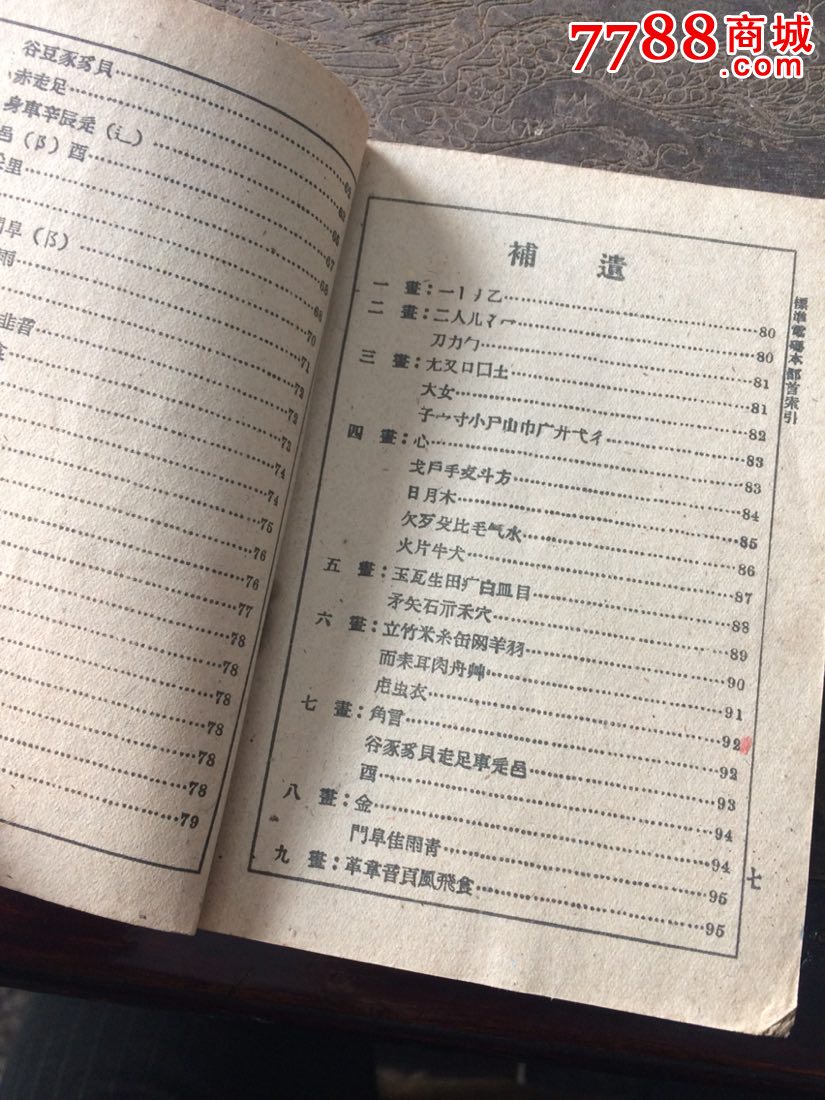 7788商城
谷豆豕豸貝
赤走足
身車辛辰辵(辶)
邑(阝)酉
里
阜(阝)
雨
韭音
67
68
68
70
71
72
72
73
74
74
75
76
76
77
78
78
78
78
78
79
補遺
一畫:一丨丿乙……80
二畫:二人儿冫冖……80
刀力勹……81
三畫:尢又口囗土……81
大女……82
子宀寸小尸山巾广廾弋彳……83
四畫:心……83
戈戶手攴斗方……84
日月木……85
欠歹殳比毛气水……86
火片牛犬……87
五畫:玉瓦生田疒白皿目……88
矛矢石示禾穴……89
六畫:立竹米糸缶网羊羽……90
而耒耳肉舟艸……91
虍虫衣……92
七畫:角言……92
谷豕豸貝走足車辵邑……93
酉……94
八畫:金……94
門阜隹雨青……95
九畫:革韋音頁風飛食……95
標準電碼本部首索引
七